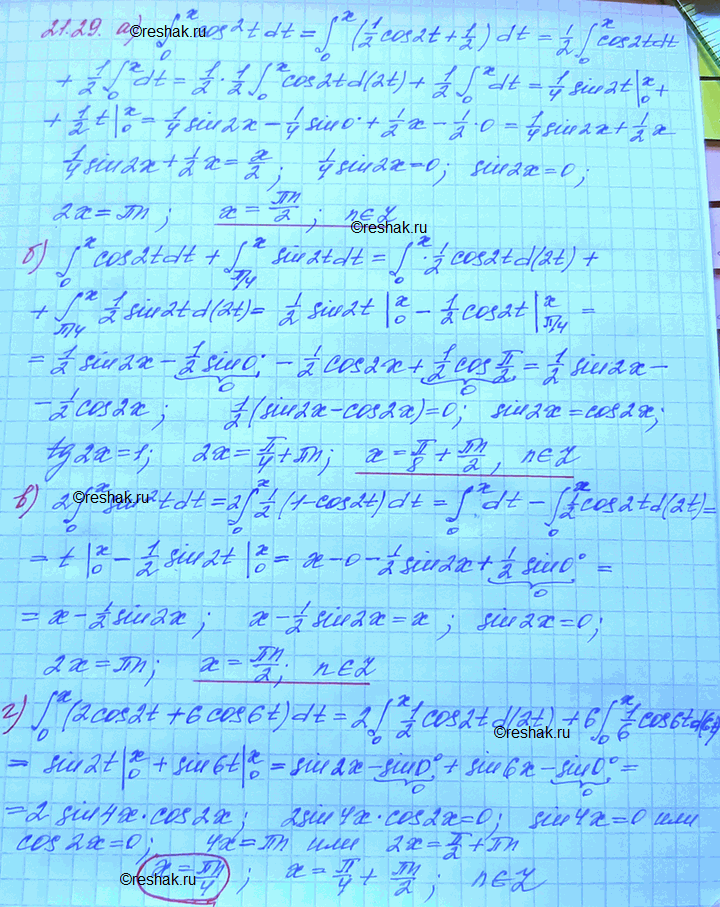 21.29. а) ∫₀ˣ cos²t dt = ∫₀ˣ (1/2 cos2t + 1/2) dt = 1/2 ∫₀ˣ cos2t dt
+ 1/2 ∫₀ˣ dt = 1/2 · 1/2 ∫₀ˣ cos2t d(2t) + 1/2 ∫₀ˣ dt = 1/4 sin2t |₀ˣ +
+ 1/2 t |₀ˣ = 1/4 sin2x − 1/4 sin0° + 1/2 x − 1/2 · 0 = 1/4 sin2x + 1/2 x
1/4 sin2x + 1/2 x = x/2 ; 1/4 sin2x = 0 ; sin2x = 0 ;
2x = πn ; x = πn/2 ; n∈Z
©reshak.ru
б) ∫₀ˣ cos2t dt + ∫_{π/4}^x sin2t dt = ∫₀ˣ · 1/2 cos2t d(2t) +
+ ∫_{π/4}^x 1/2 sin2t d(2t) = 1/2 sin2t |₀ˣ − 1/2 cos2t |_{π/4}^x =
= 1/2 sin2x − 1/2 sin0° − 1/2 cos2x + 1/2 cos π/2 = 1/2 sin2x −
0 0
− 1/2 cos2x ; 1/2 (sin2x − cos2x) = 0 ; sin2x = cos2x ;
tg2x = 1 ; 2x = π/4 + πn ; x = π/8 + πn/2 , n∈Z
©reshak.ru
в) 2∫₀ˣ sin²t dt = 2∫₀ˣ 1/2 (1 − cos2t) dt = ∫₀ˣ dt − ∫₀ˣ 1/2 cos2t d(2t) =
= t |₀ˣ − 1/2 sin2t |₀ˣ = x − 0 − 1/2 sin2x + 1/2 sin0° =
0
= x − 1/2 sin2x ; x − 1/2 sin2x = x ; sin2x = 0 ;
2x = πn ; x = πn/2 ; n∈Z
г) ∫₀ˣ (2cos2t + 6cos6t) dt = 2∫₀ˣ 1/2 cos2t d(2t) + 6∫₀ˣ 1/6 cos6t d(6t)
©reshak.ru
= sin2t |₀ˣ + sin6t |₀ˣ = sin2x − sin0° + sin6x − sin0° =
0 0
= 2 sin4x · cos2x ; 2sin4x · cos2x = 0 ; sin4x = 0 или
cos2x = 0 ; 4x = πn или 2x = π/2 + πn
x = πn/4 ; x = π/4 + πn/2 ; n∈Z
©reshak.ru